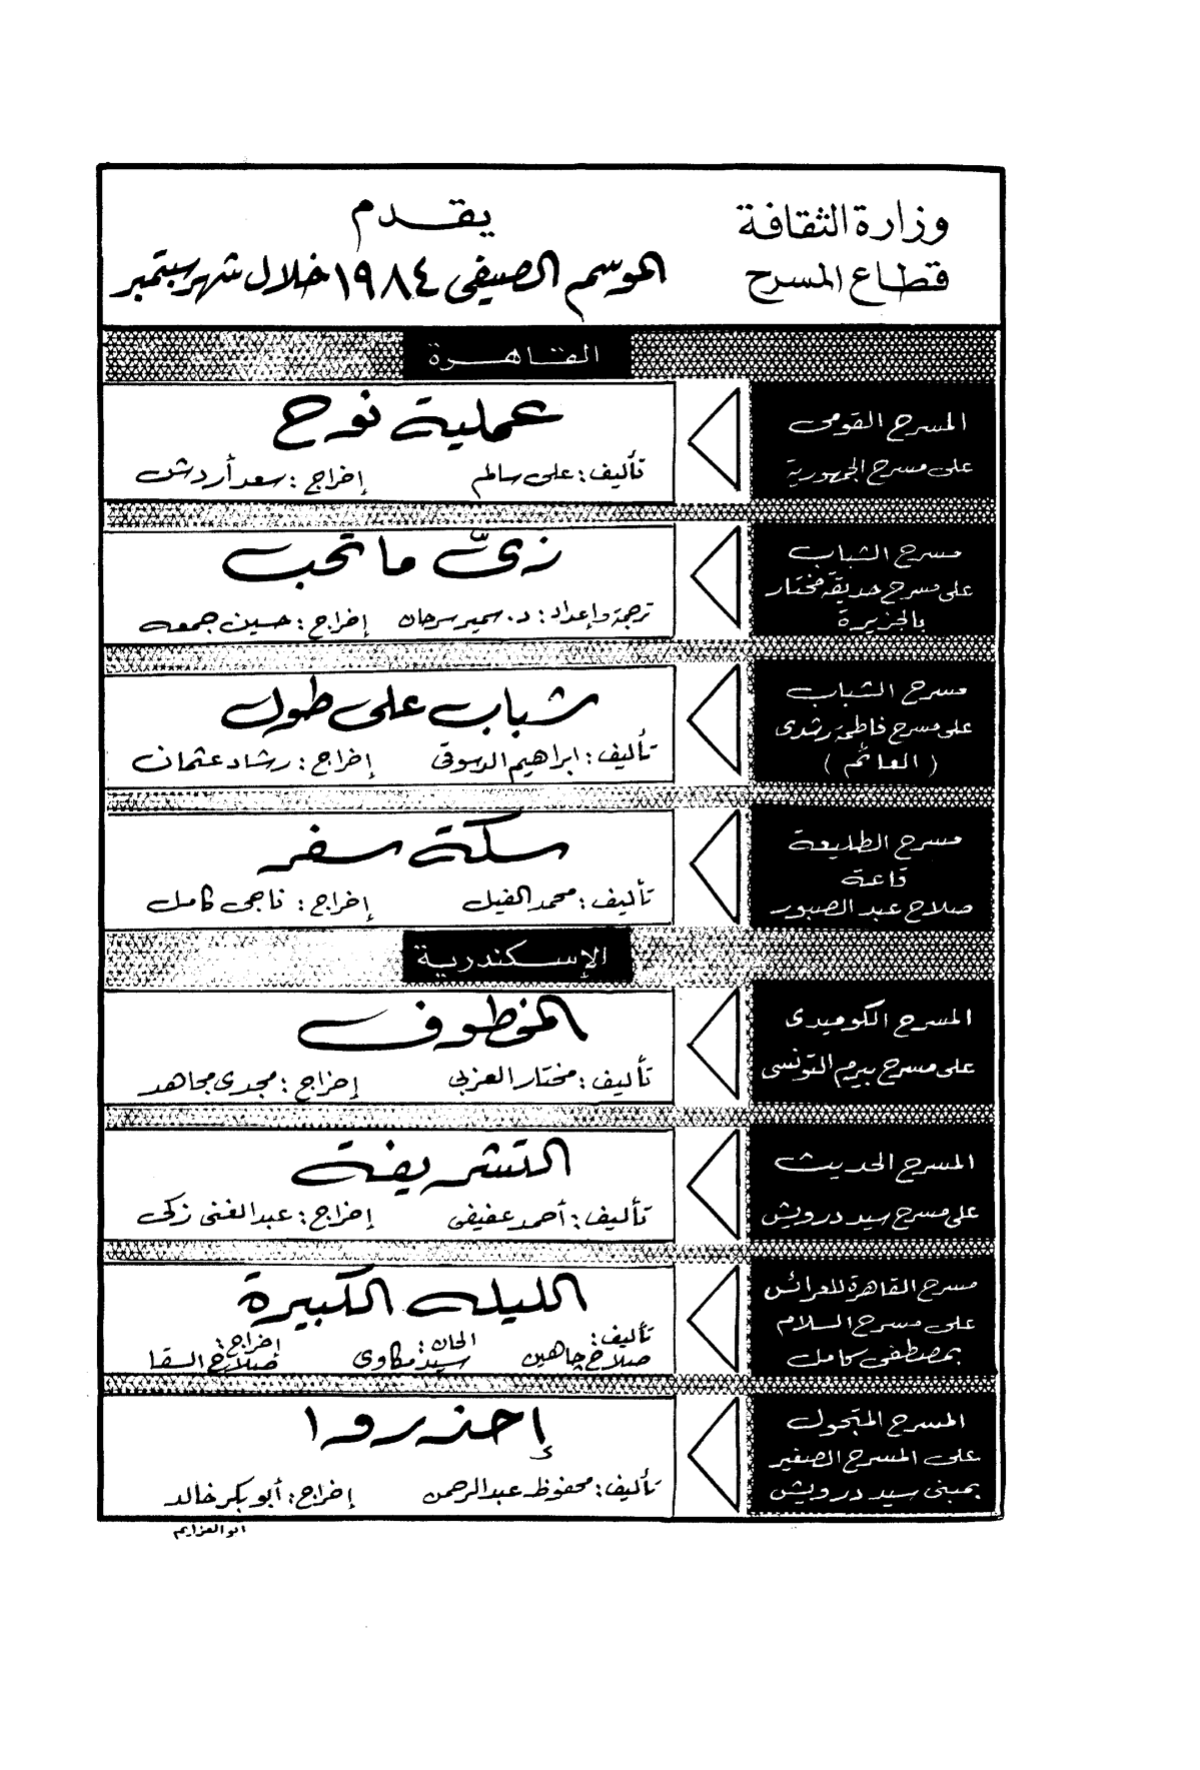 وزارة الثقافة
قطاع المسرح
يقدم
الموسم الصيفى ١٩٨٤ خلال شهر سبتمبر
القاهرة
المسرح القومى
على مسرح الجمهورية
عملية نوح
تأليف: على سالم إخراج: سعد أردش
مسرح الشباب
على مسرح حديقة مختار
بالجزيرة
زىّ ما تحب
ترجمة وإعداد: د. سمير سرحان إخراج: حسين جمعه
مسرح الشباب
على مسرح فاطمة رشدى
(العائم)
شباب على طول
تأليف: ابراهيم الدسوقى إخراج: رشاد عثمان
مسرح الطليعة
قاعة
صلاح عبد الصبور
سكة سفر
تأليف: محمد الفيل إخراج: ناجى كامل
الإسكندرية
المسرح الكوميدى
على مسرح بيرم التونسى
المخطوف
تأليف: مختار العزبى إخراج: مجدى مجاهد
المسرح الحديث
على مسرح سيد درويش
التشريفة
تأليف: أحمد عفيفى إخراج: عبد الغنى زكى
مسرح القاهرة للعرائس
على مسرح السلام
بمصطفى كامل
الليله الكبيرة
تأليف: الحان: إخراج:
صلاح جاهين سيد مكاوى صلاح السقا
المسرح المتجول
على المسرح الصغير
بمبنى سيد درويش
إحذروا
تأليف: محفوظ عبد الرحمن إخراج: أبو بكر خالد
ابو العزايم